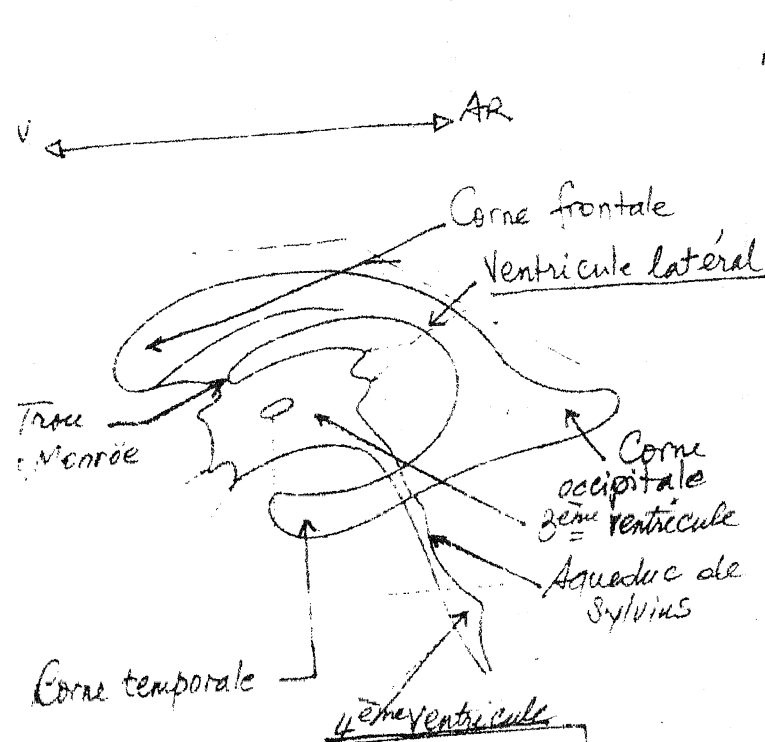 V
AR
Corne frontale
Ventricule latéral
Trou
Monröe
Corne
occipitale
3ème ventricule
Aqueduc de
Sylvius
Corne temporale
4ème ventricule